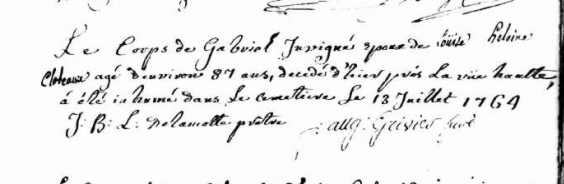 Le Corps de Gabriel Juvigné époux de Louise heleine
Coteaux agé d'environ 87 ans, decedé d'hier près la rüe haulte,
a été inhumé dans le cemetiere Le 13 Juillet 1764
J. B. L. Delamotte prêtre aug: Grivier curé